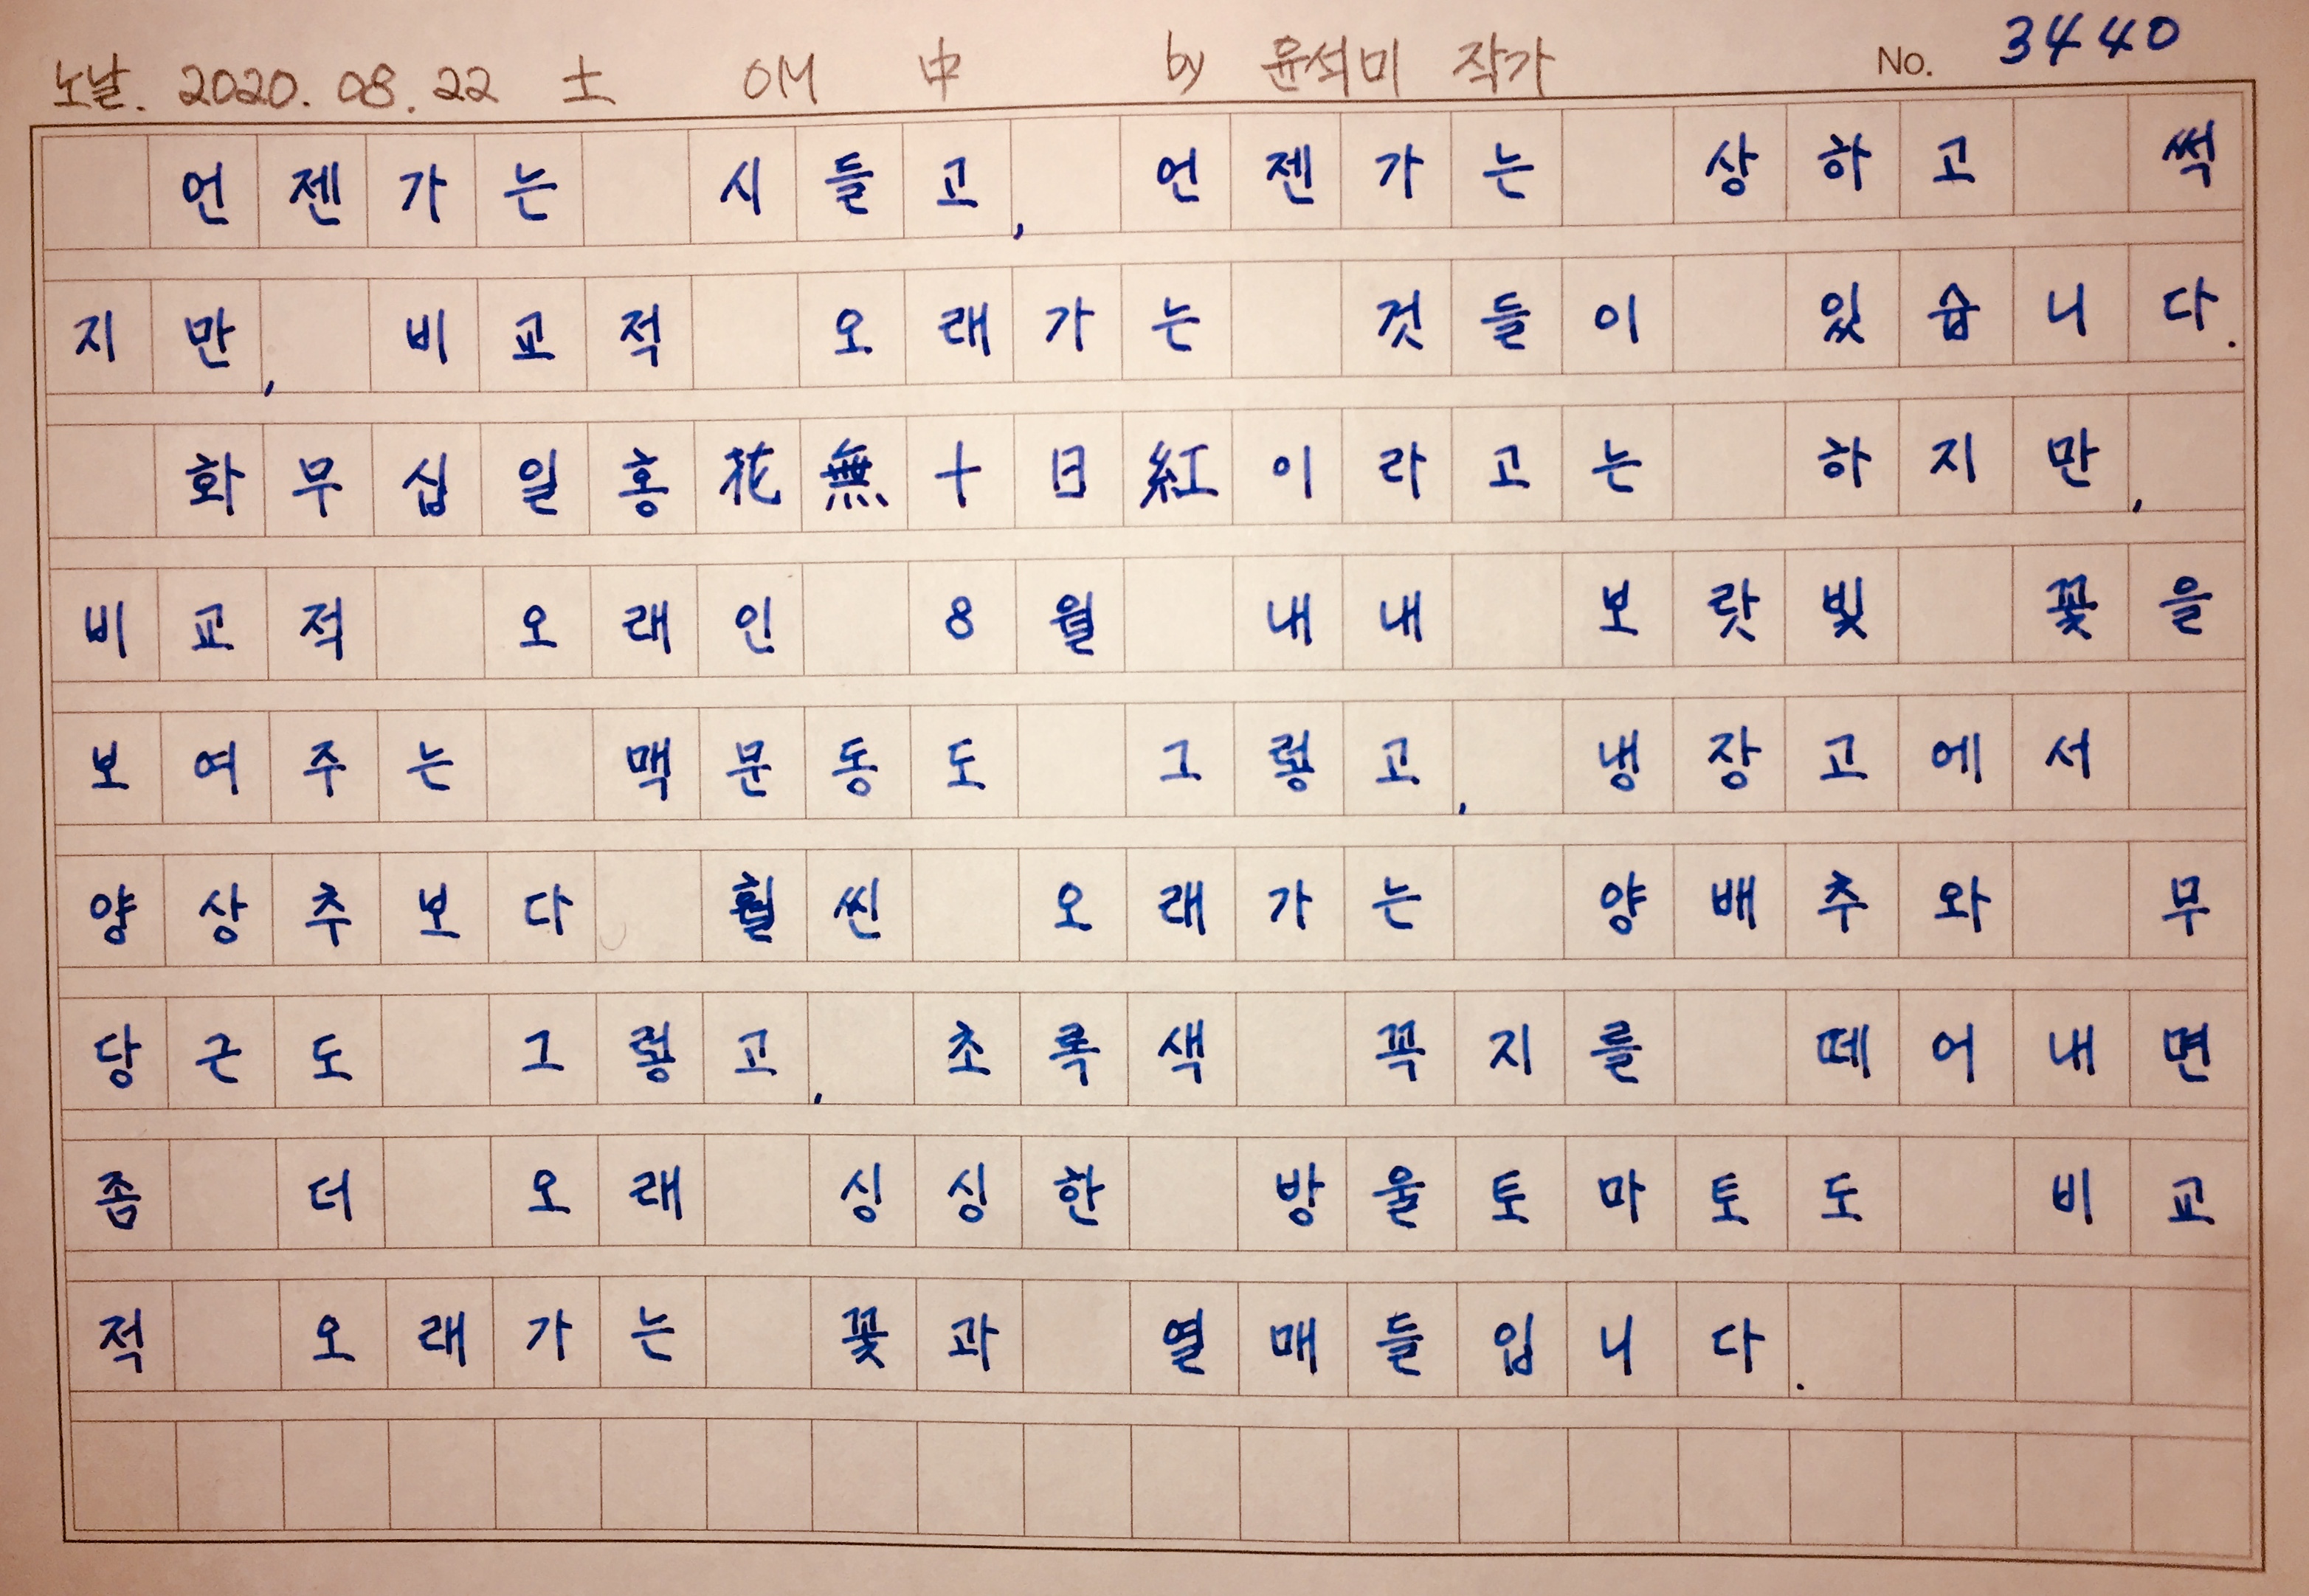 노날. 2020. 08. 22 土 OM 中 by 윤석미 작가 No. 3440
언젠가는 시들고, 언젠가는 상하고 썩
지만, 비교적 오래가는 것들이 있습니다.
화무십일홍花無十日紅이라고는 하지만,
비교적 오래인 8월 내내 보랏빛 꽃을
보여주는 맥문동도 그렇고, 냉장고에서
양상추보다 훨씬 오래가는 양배추와 무
당근도 그렇고, 초록색 꼭지를 떼어내면
좀 더 오래 싱싱한 방울토마토도 비교
적 오래가는 꽃과 열매들입니다.